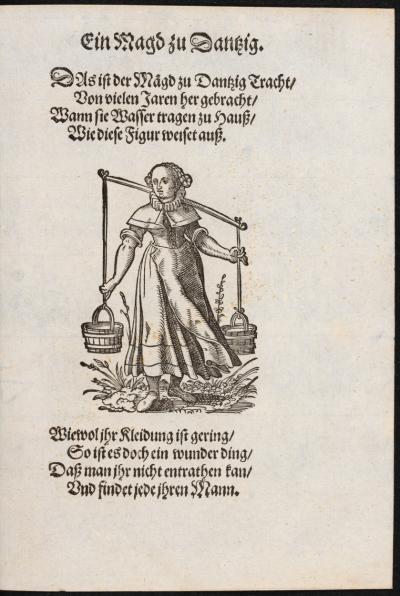 Ein Magd zu Dantzig.
DAs ist der Mägd zu Dantzig Tracht/
Von vielen Jaren her gebracht/
Wann sie Wasser tragen zu Hauß/
Wie diese Figur weiset auß.
Wiewol jhr Kleidung ist gering/
So ist es doch ein wunder ding/
Daß man jhr nicht entrathen kan/
Vnd findet jede jhren Mann.